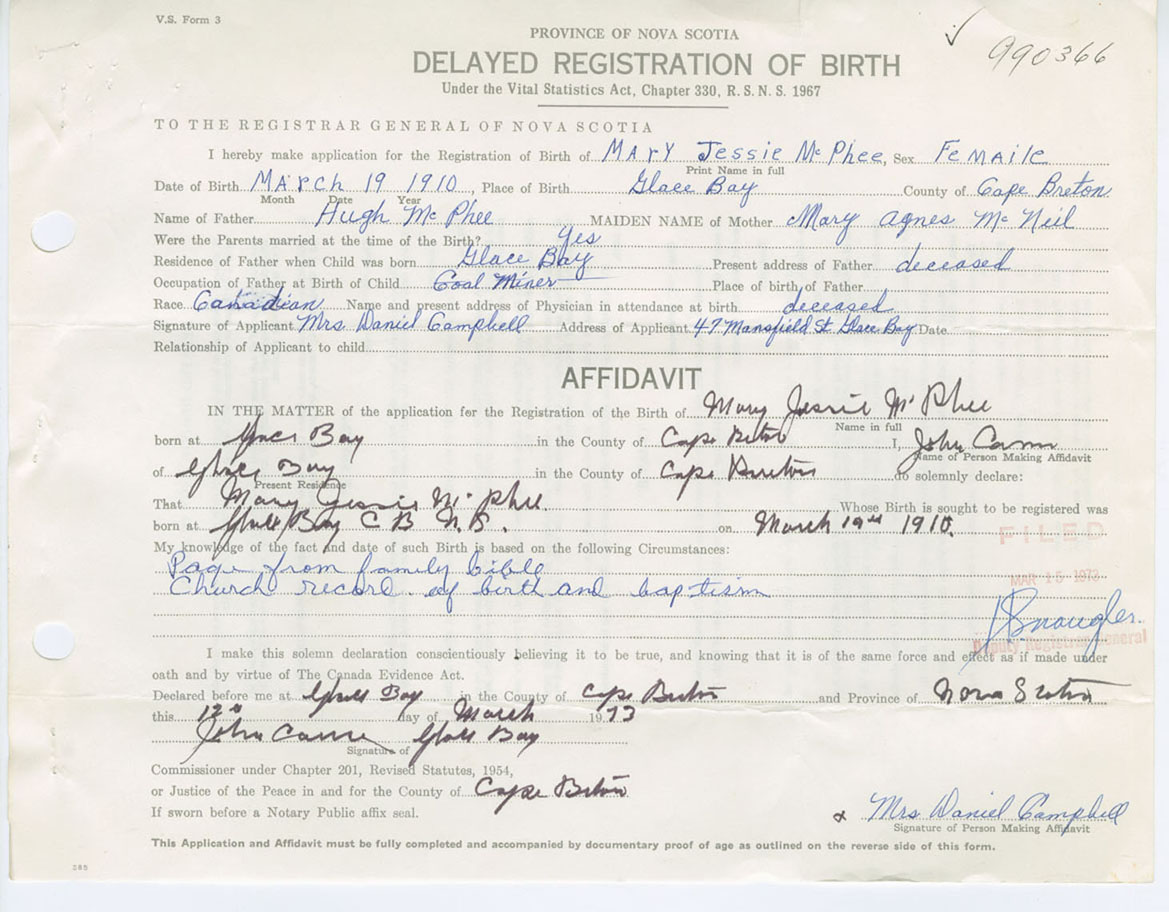 V.S. Form 3
PROVINCE OF NOVA SCOTIA
990366
DELAYED REGISTRATION OF BIRTH
Under the Vital Statistics Act, Chapter 330, R. S. N. S. 1967
TO THE REGISTRAR GENERAL OF NOVA SCOTIA
I hereby make application for the Registration of Birth of MArY Jessie McPhee, Sex FeMAile
Print Name in full
Date of Birth MArcH 19 1910, Place of Birth Glace Bay County of Cape Breton
Month Date Year
Name of Father Hugh McPhee MAIDEN NAME of Mother Mary Agnes McNeil
Were the Parents married at the time of the Birth? Yes
Residence of Father when Child was born Glace Bay Present address of Father deceased
Occupation of Father at Birth of Child Coal Miner Place of birth of Father
Race Canadian Name and present address of Physician in attendance at birth deceased
Signature of Applicant Mrs Daniel Campbell Address of Applicant 47 Mansfield St. Glace Bay Date
Relationship of Applicant to child
AFFIDAVIT
IN THE MATTER of the application for the Registration of the Birth of Mary Jessie McPhee
Name in full
born at Glace Bay in the County of Cape Breton I, John Cann
Name of Person Making Affidavit
of Glace Bay in the County of Cape Breton do solemnly declare:
Present Residence
That Mary Jessie McPhee Whose Birth is sought to be registered was
born at Glace Bay C B N.S. on March 19th 1910.
FILED
My knowledge of the fact and date of such Birth is based on the following Circumstances:
Page from family bible
MAR 15 1973
Church record of birth and baptism
Deputy Registrar General
I make this solemn declaration conscientiously believing it to be true, and knowing that it is of the same force and effect as if made under
oath and by virtue of The Canada Evidence Act.
Declared before me at Glace Bay in the County of Cape Breton and Province of Nova Scotia
this 12th day of March 1973
John Cann Glace Bay
Signature of
Commissioner under Chapter 201, Revised Statutes, 1954,
or Justice of the Peace in and for the County of Cape Breton
If sworn before a Notary Public affix seal.
Mrs Daniel Campbell
Signature of Person Making Affidavit
This Application and Affidavit must be fully completed and accompanied by documentary proof of age as outlined on the reverse side of this form.
285